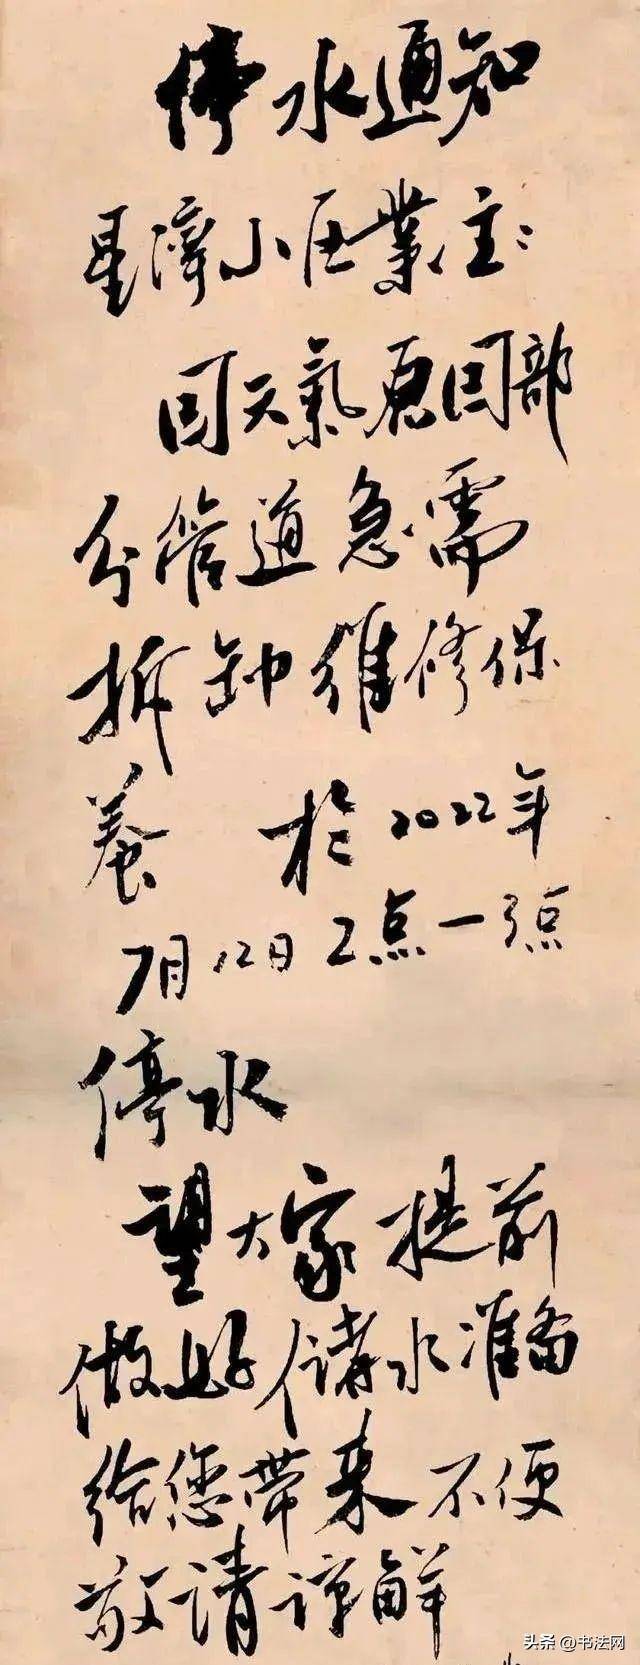 停水通知
星濟小区業主：
因天氣原因部
分管道急需
拆卸維修保
養 於2022年
7月12日2点一5点
停水
望大家提前
做好儲水準备
给您带来不便
敬请谅解
头条@书法网